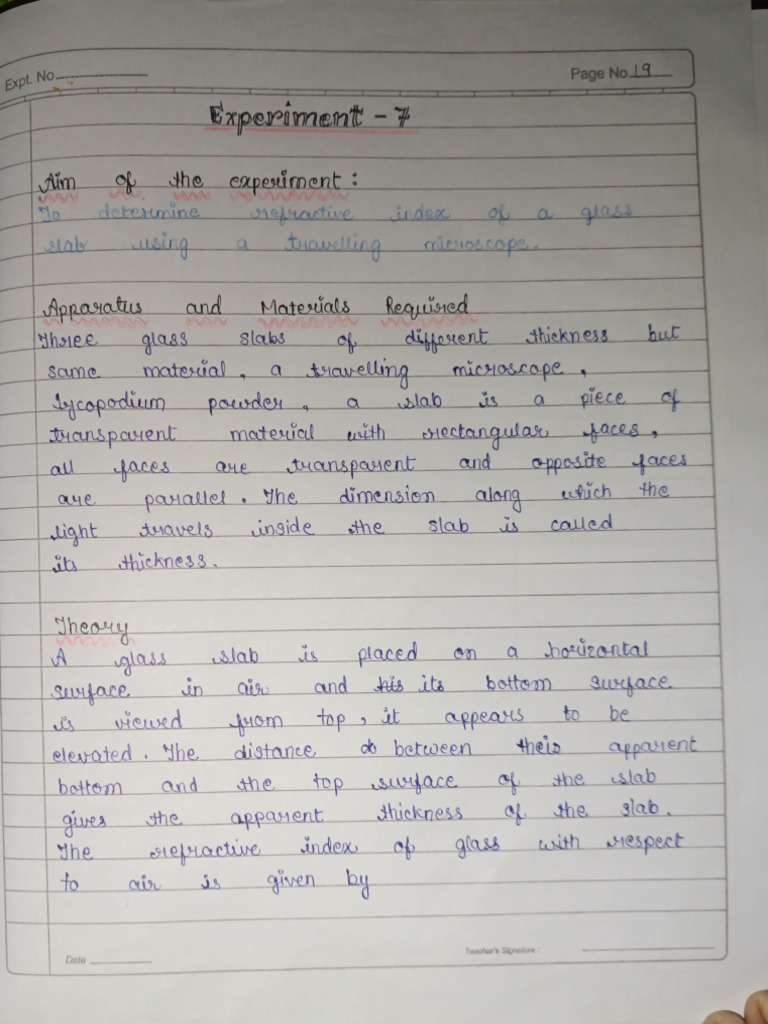 Expt. No.
Page No. 19
Experiment - 7
Aim of the experiment :
To determine refractive index of a glass
slab using a travelling microscope.
Apparatus and Materials Required
Three glass slabs of different thickness but
same material, a travelling microscope,
lycopodium powder, a slab is a piece of
transparent material with rectangular faces,
all faces are transparent and opposite faces
are parallel. The dimension along which the
light travels inside the slab is called
its thickness.
Theory
A glass slab is placed on a horizontal
surface in air and its bottom surface
is viewed from top, it appears to be
elevated. The distance between this apparent
bottom and the top surface of the slab
gives the apparent thickness of the slab.
The refractive index of glass with respect
to air is given by
Date
Teacher's Signature :